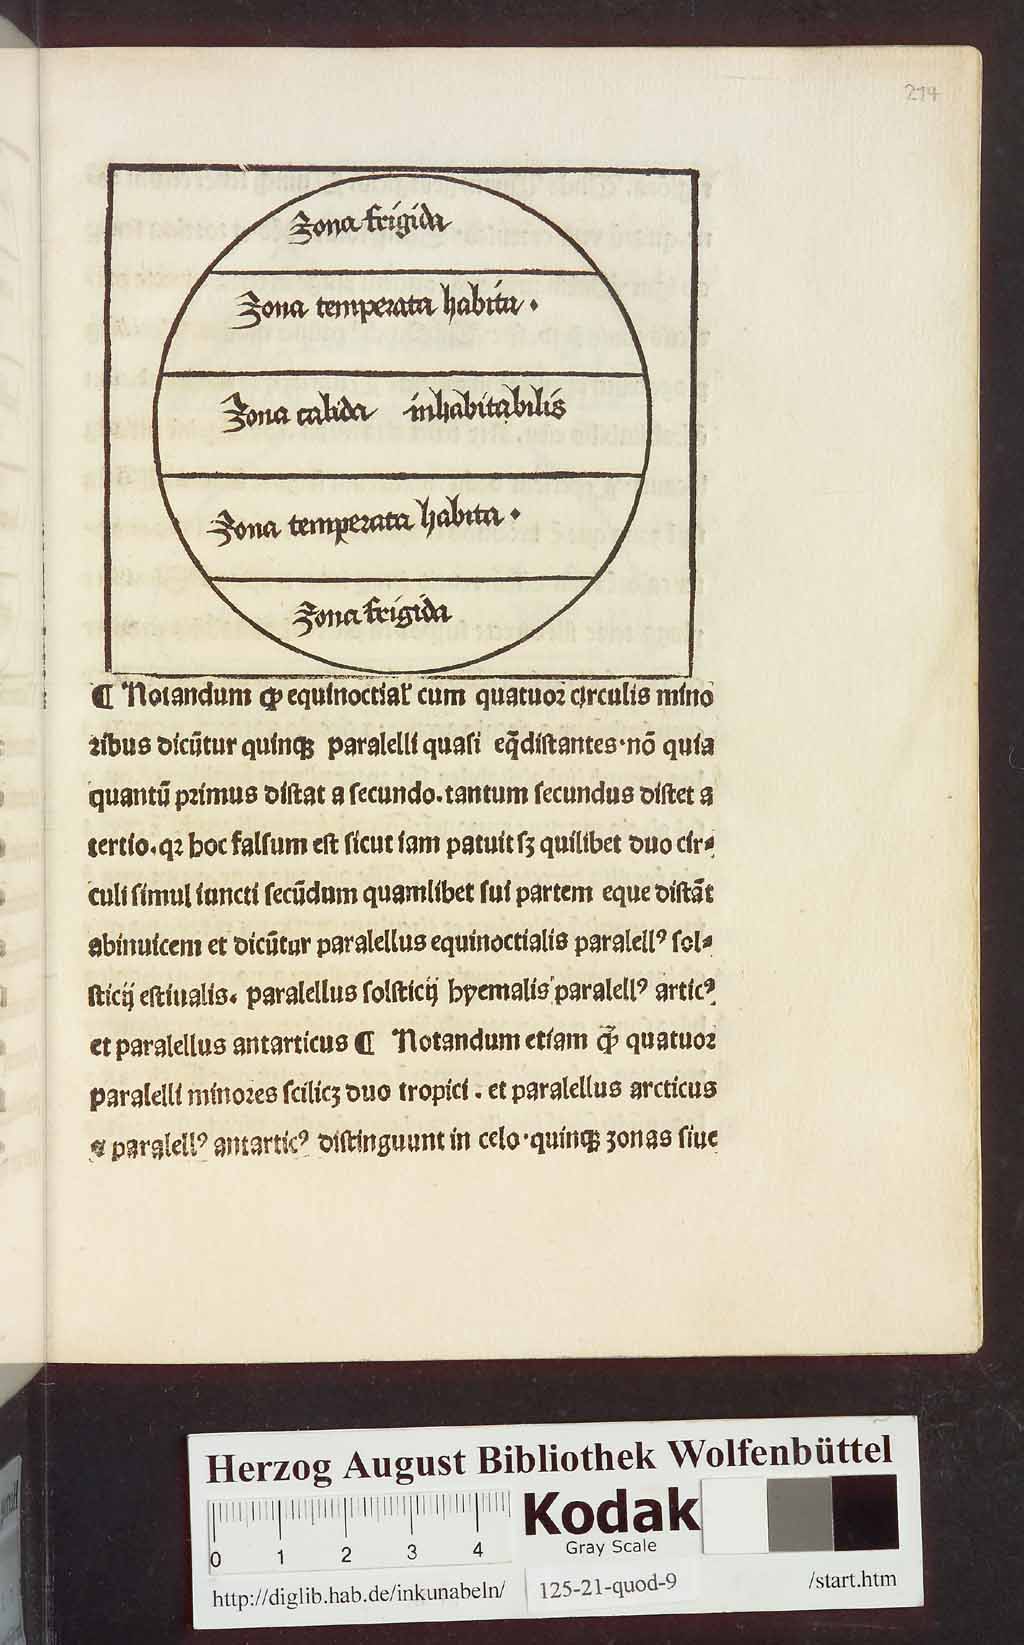 214
Zona frigida
Zona temperata habita.
Zona calida inhabitabilis
Zona temperata habita.
Zona frigida
¶ Notandum ꝙ equinoctialʼ cum quatuor circulis mino
ribus dicūtur quinqꝫ paralelli quasi eq̄distantes·nō quia
quantū primus distat a secundo.tantum secundus distet a
tertio.qꝛ hoc falsum est sicut iam patuit sꝫ quilibet duo cir⸗
culi simul iuncti secūdum quamlibet sui partem eque distāt
abinuicem et dicūtur paralellus equinoctialis paralellꝰ sol⸗
sticij estiualis. paralellus solsticij hyemalis paralellꝰ articꝰ
et paralellus antarticus ¶ Notandum etiam ꝙ quatuor
paralelli minores scilicꝫ duo tropici . et paralellus arcticus
⁊ paralellꝰ antarticꝰ distinguunt in celo·quinqꝫ zonas siue
Herzog August Bibliothek Wolfenbüttel
0 1 2 3 4
Kodak
Gray Scale
http://diglib.hab.de/inkunabeln/ 125-21-quod-9 /start.htm